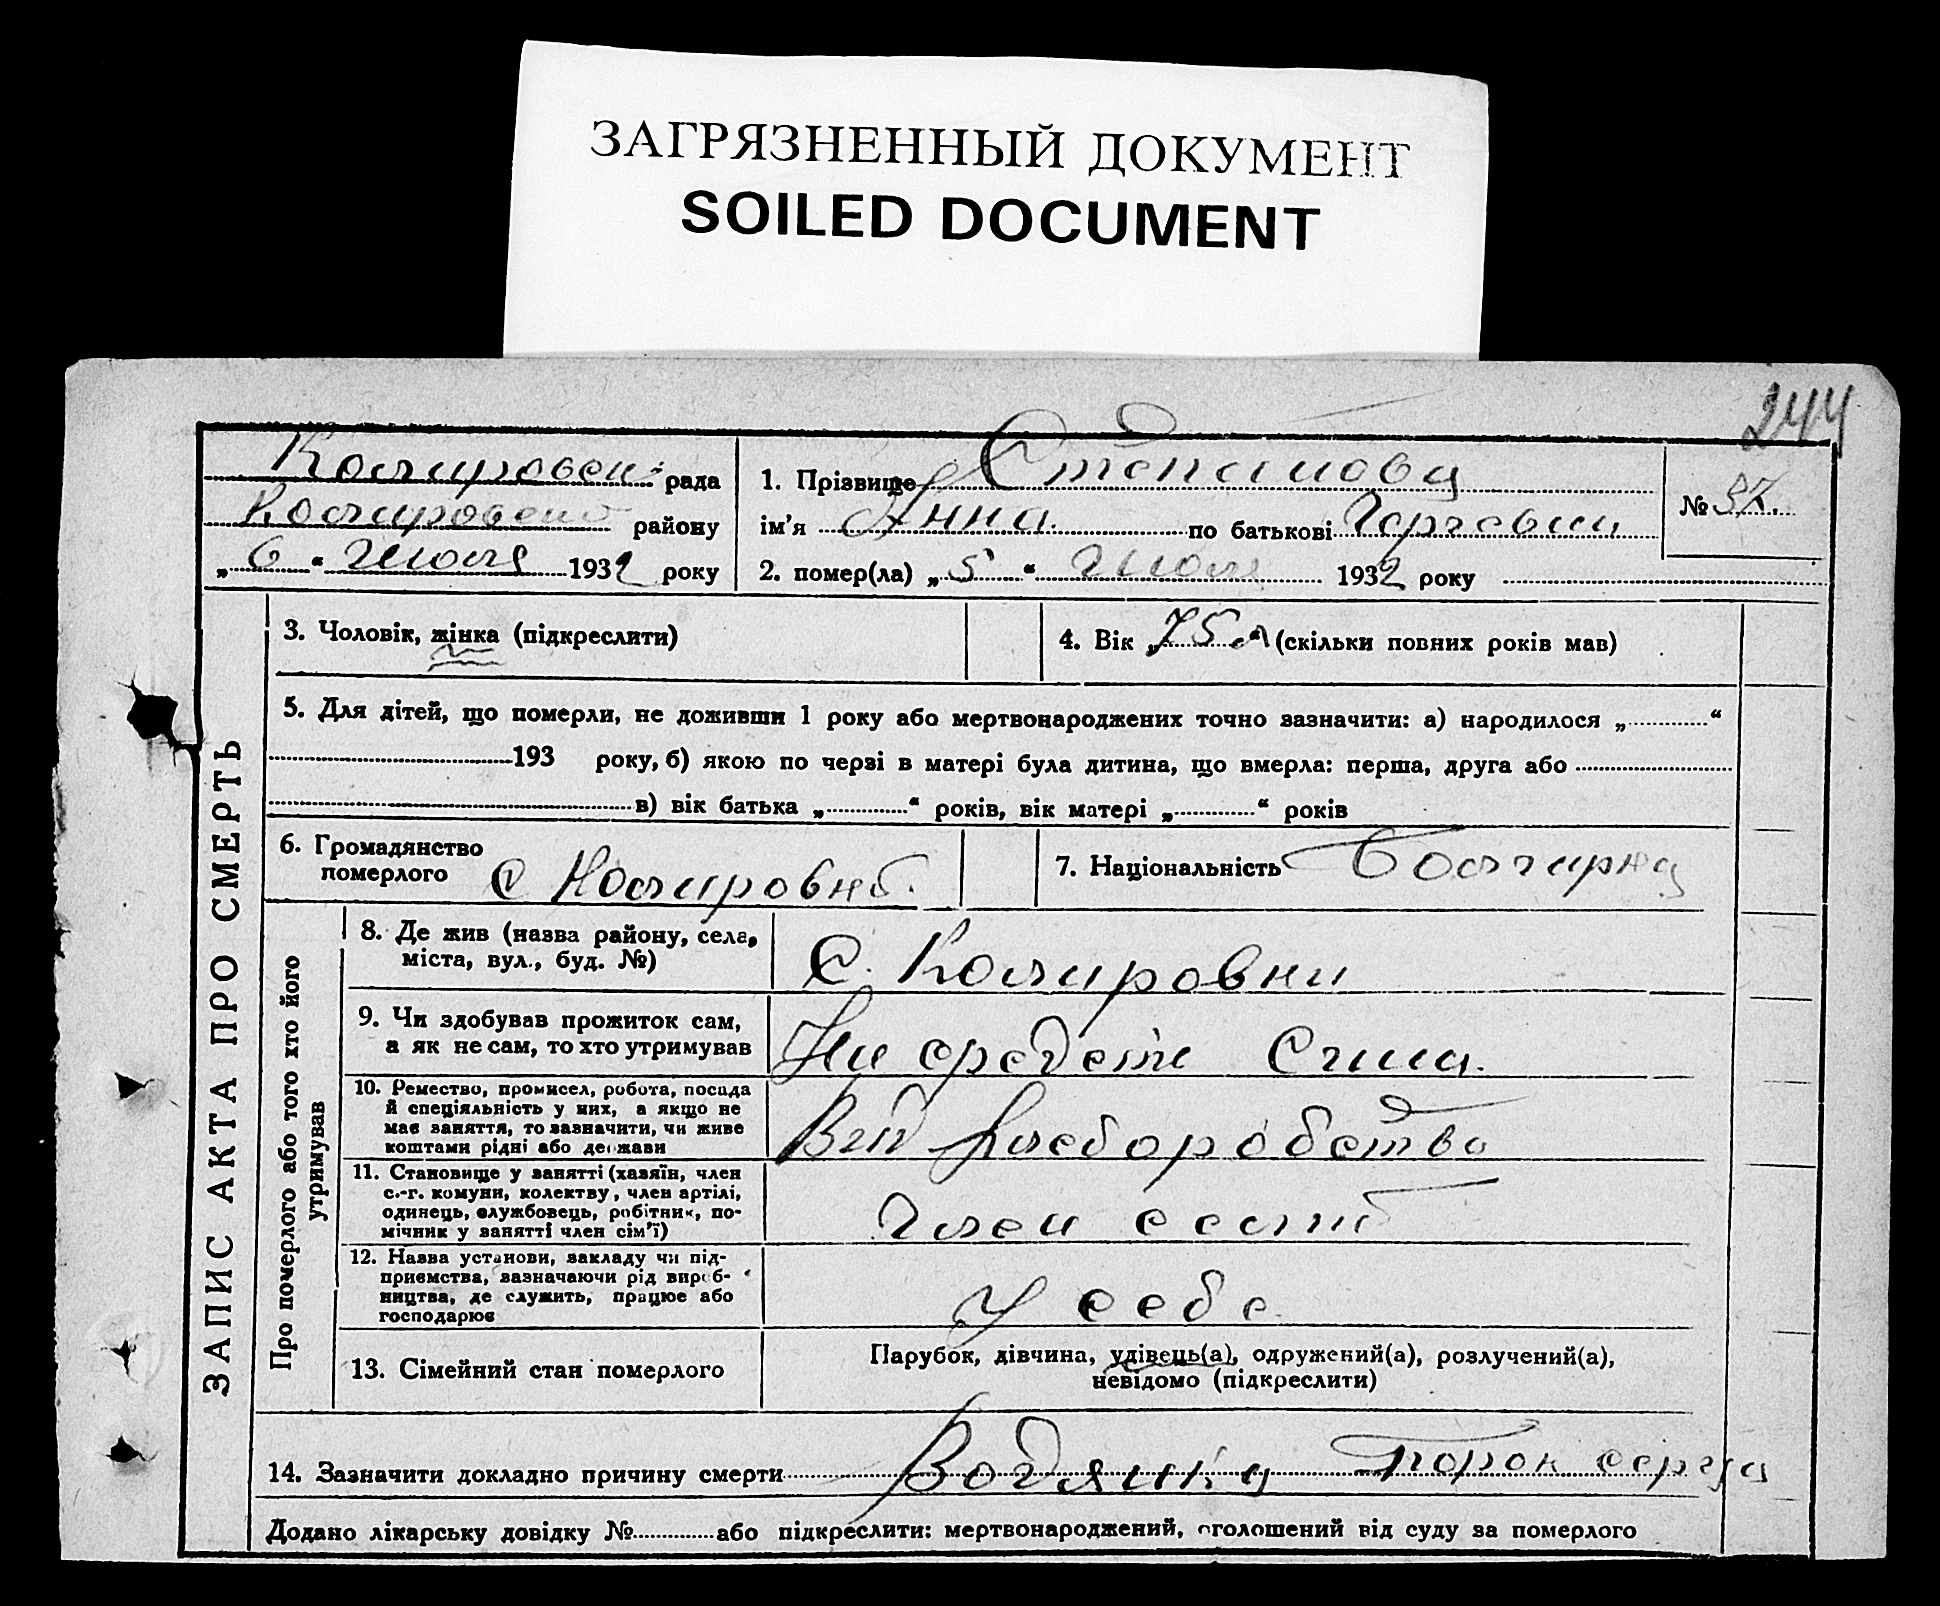 ЗАГРЯЗНЕННЫЙ ДОКУМЕНТ
SOILED DOCUMENT
244
рада
району
„ 6 “ Июля 1932 року
1. Прізвище Степанова
ім'я Анна по батькові
2. помер(ла) „ 5 “ Июля 1932 року
№ 37.
ЗАПИС АКТА ПРО СМЕРТЬ
3. Чоловік, жінка (підкреслити)
4. Вік „ 75 л “ (скільки повних років мав)
5. Для дітей, що померли, не доживши 1 року або мертвонароджених точно зазначити: а) народилося „ “
193 року, б) якою по черзі в матері була дитина, що вмерла: перша, друга або
в) вік батька „ “ років, вік матері „ “ років
6. Громадянство
померлого с
7. Національність Болгарка
Про померлого або того хто його
утримував
8. Де жив (назва району, села,
міста, вул., буд. №)
с.
9. Чи здобував прожиток сам,
а як не сам, то хто утримував
На средств Сына.
10. Ремество, промисел, робота, посада
й спеціяльність у них, а якщо не
має заняття, то зазначити, чи живе
коштами рідні або держави
хлеборобство
11. Становище у занятті (хазяїн, член
с.-г. комуни, колектву, член артілі,
одинець, службовець, робітник, по-
мічник у занятті член сім'ї)
член
12. Назва установи, закладу чи під-
приємства, зазначаючи рід вироб-
ництва, де служить, працює або
господарює
У себе
13. Сімейний стан померлого
Парубок, дівчина, удівець(а), одружений(а), розлучений(а),
невідомо (підкреслити)
14. Зазначити докладно причину смерти Водянка порок серца
Додано лікарську довідку № або підкреслити: мертвонароджений, оголошений від суду за померлого